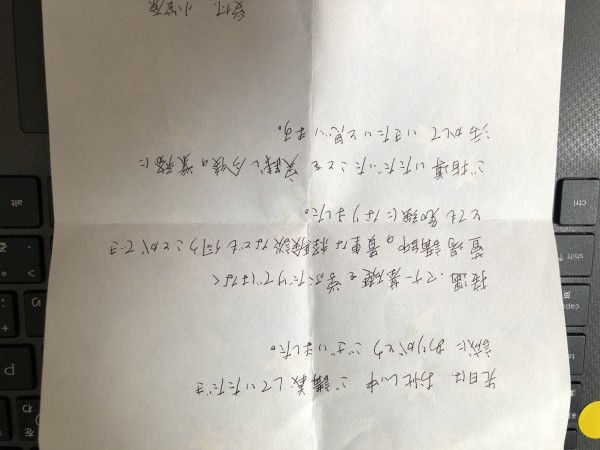 先日は、お忙しい中 ご講義していただき
誠にありがとうございました。
接遇、マナー基礎を学ぶだけではなく
講師の貴重な経験談なども伺うことができ
とても勉強になりました。
ご指導いただいたことを実践し今後の業務に
活かしていきたいと思います。
受付.
alt
ctrl
shift
caps
英数
P
を
わ